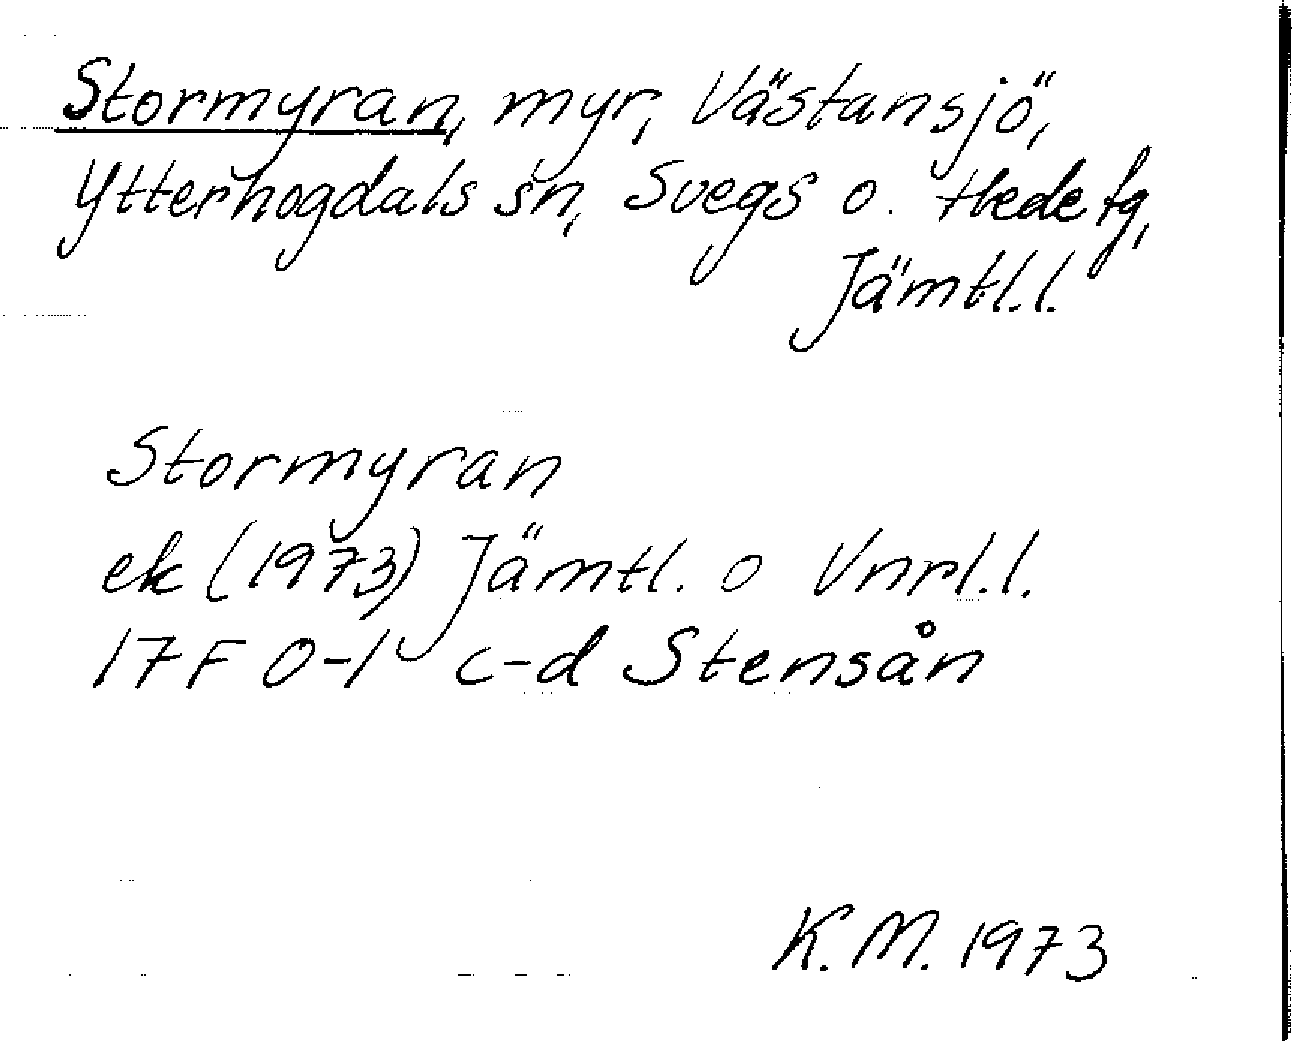 Stormyran, myr, Västansjö,
Ytterhogdals sn, Svegs o. Hede tg,
Jämtl.l.
Stormyran
ek (1973) Jämtl. o Vnrl.l.
17F 0-1 c-d Stensån
K.M. 1973